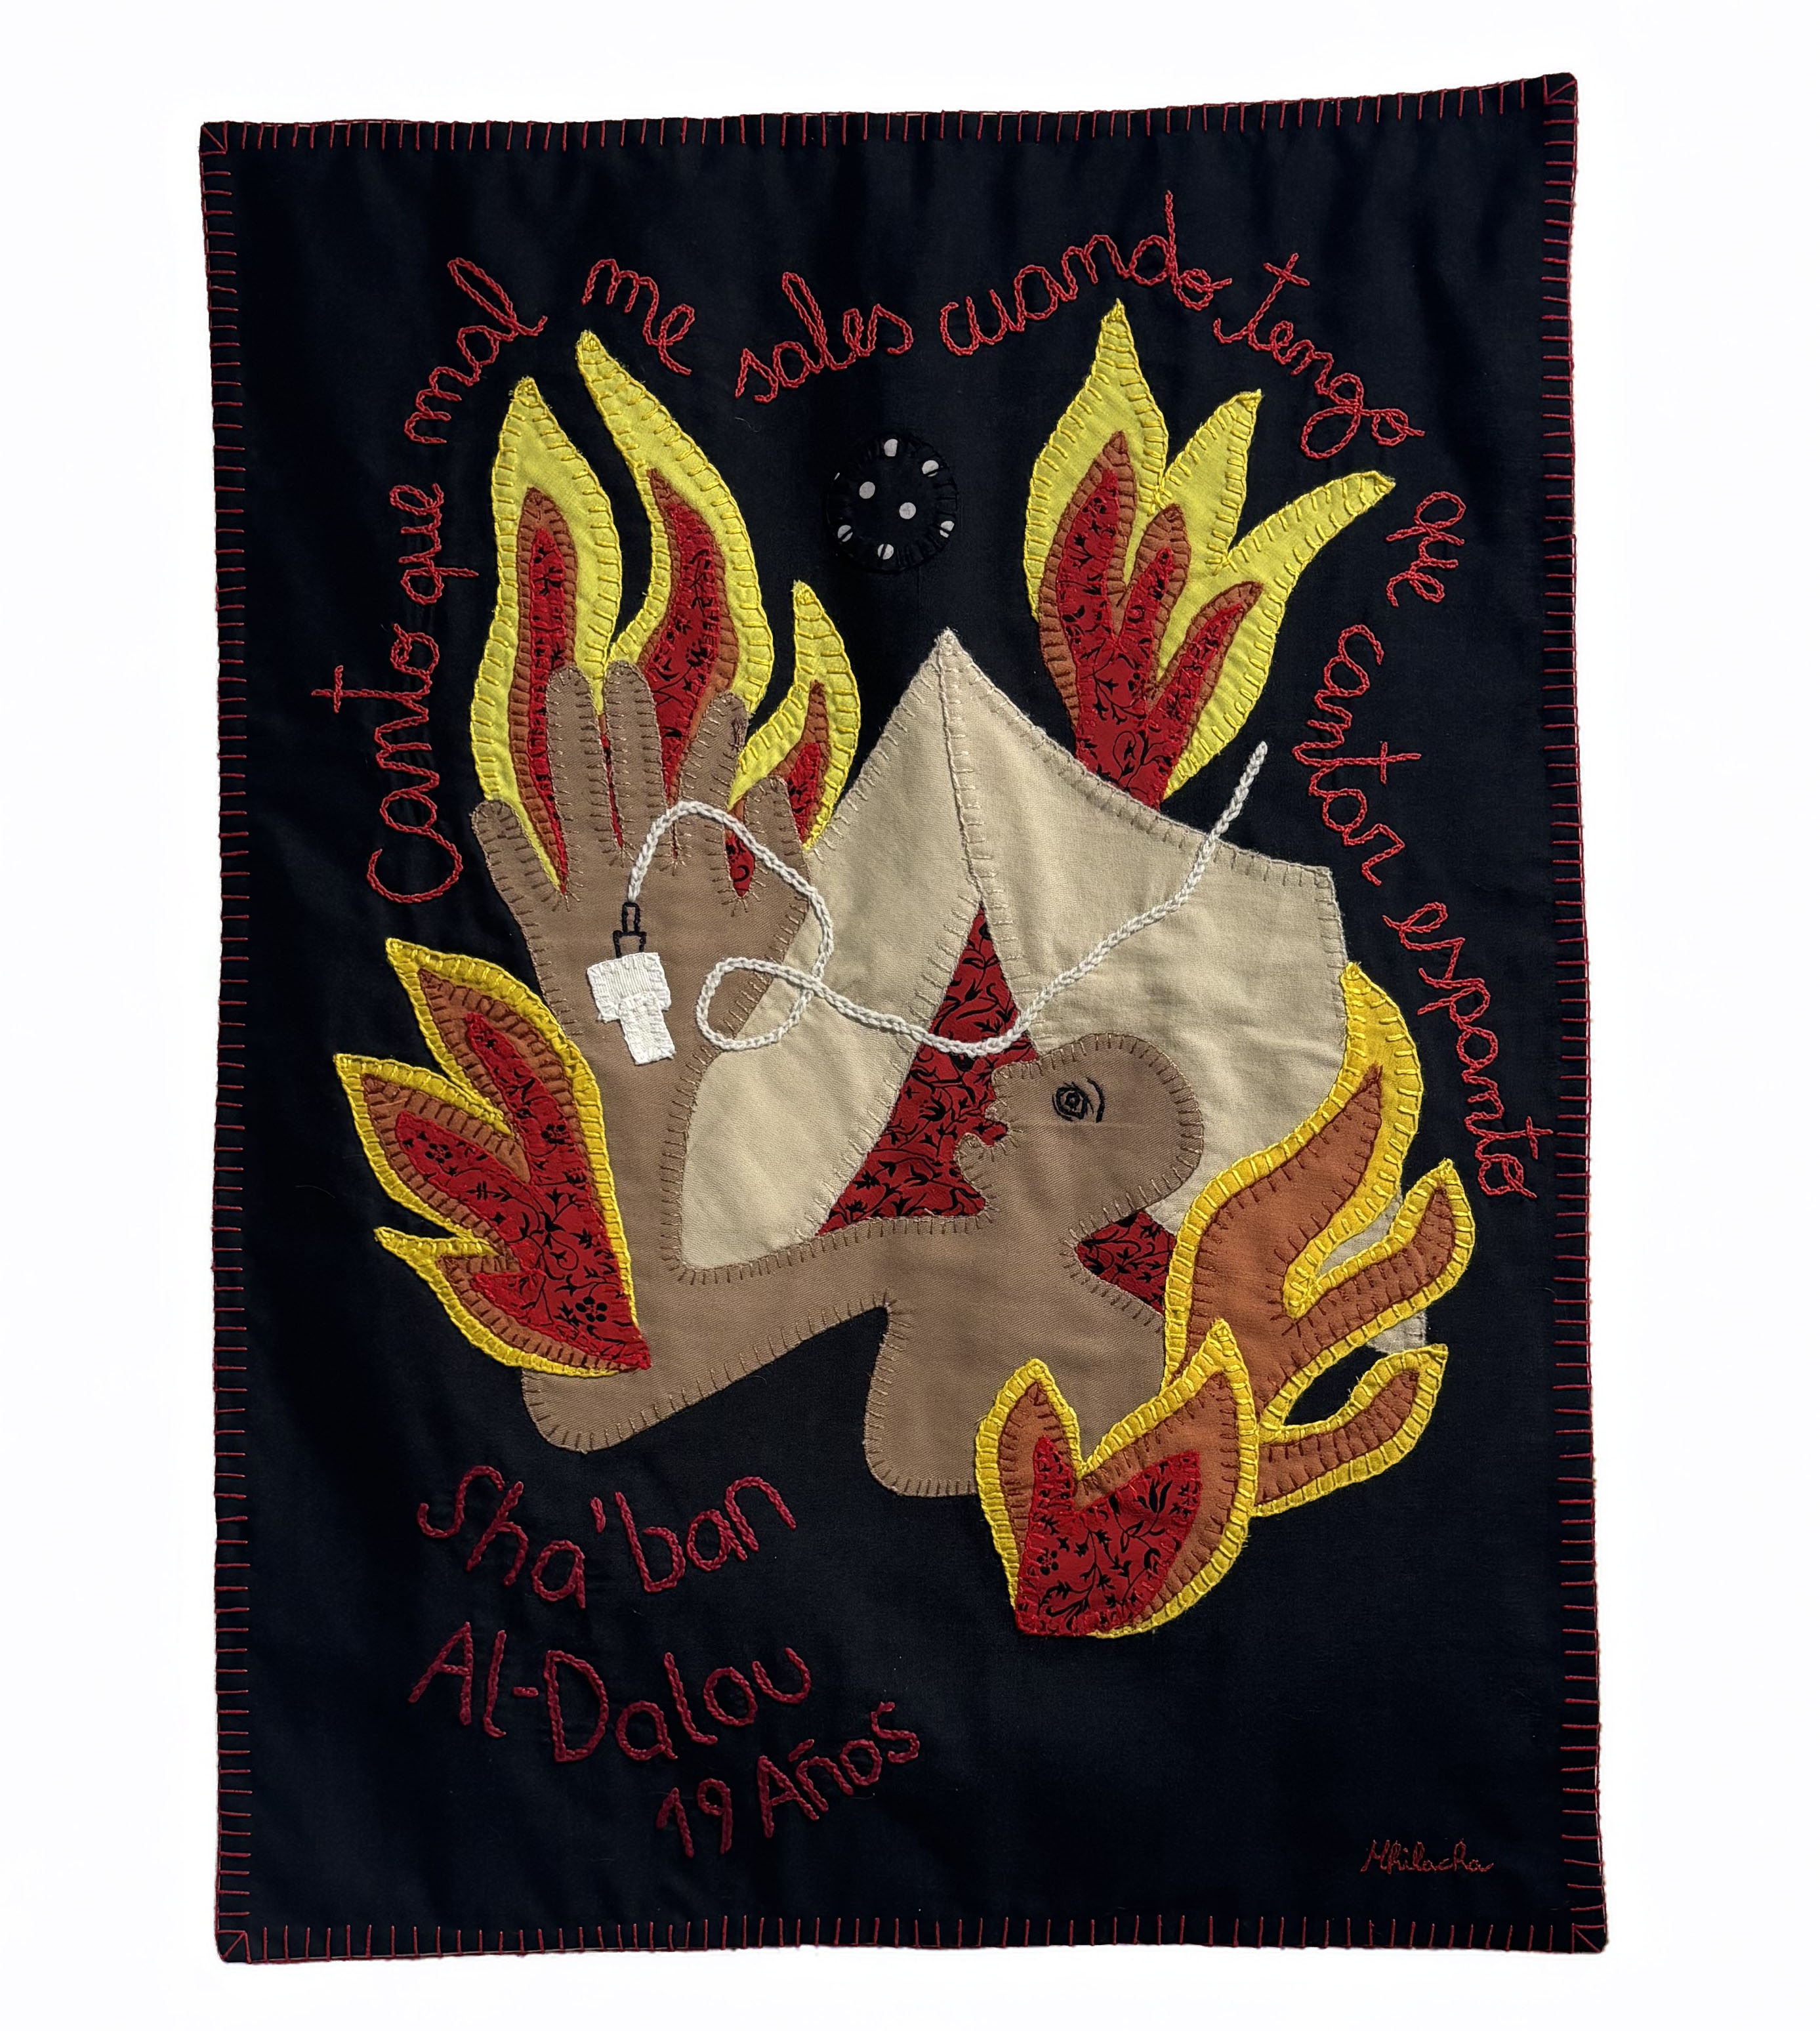 Canto que mal me sales cuando tengo que cantar espanto
Sha'ban
Al-Dalou
19 Años
Mhilacha